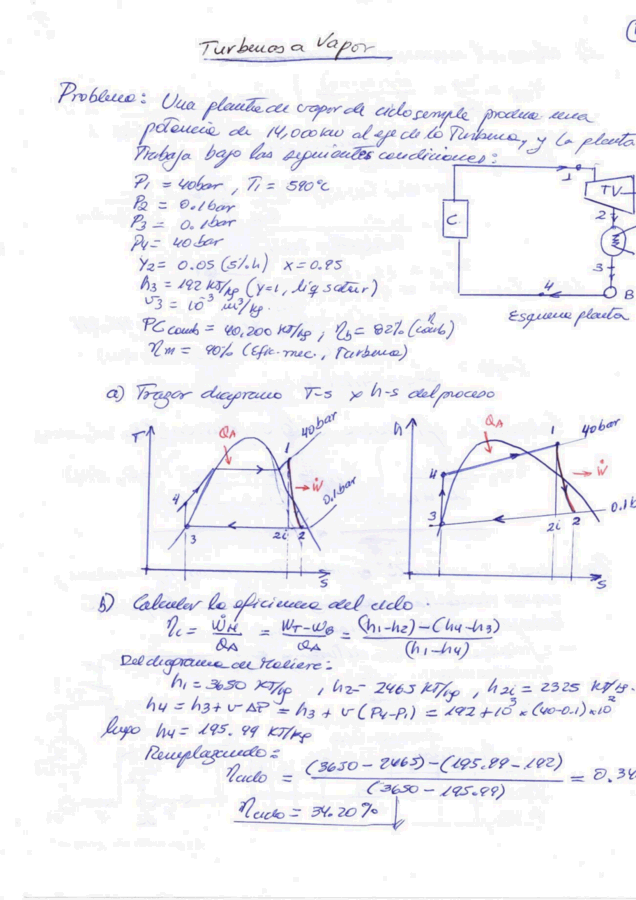 Turbinas a Vapor
Problema: Una planta de vapor de ciclo simple produce una
potencia de 14,000 kW al eje de la Turbina, y la planta
Trabaja bajo las siguientes condiciones:
P1 = 40bar , T1 = 590°C
P2 = 0.1bar
P3 = 0.1bar
P4 = 40bar
Y2 = 0.05 (5%h) x = 0.95
h3 = 192 KJ/kg (Y=1, liq satur)
v3 = 10⁻³ m³/kg.
PC comb = 40,200 KJ/kg , ηb = 82% (comb)
ηm = 90% (Efic. mec., Turbina)
1
TV
C
2
3
4
B
Esquema planta
a) Trazar diagrama T-s y h-s del proceso
T
QA
1
40bar
Ẇ
0.1bar
4
3
2i
2
s
h
QA
1
40bar
Ẇ
4
3
2i
2
s
b) Calcular la eficiencia del ciclo.
ηc = ẆN/QA = (WT-WB)/QA = ((h1-h2)-(h4-h3))/(h1-h4)
Del diagrama de Moliere:
h1 = 3650 KJ/kg , h2 = 2465 KJ/kg , h2i = 2325 KJ/kg.
h4 = h3 + v ΔP = h3 + v (P4-P1) = 192 + 10⁻³ x (40-0.1) x 10²
luego h4 = 195.99 KJ/kg
Remplazando:
ηciclo = ((3650-2465)-(195.99-192))/(3650-195.99) = 0.34
ηciclo = 34.20%